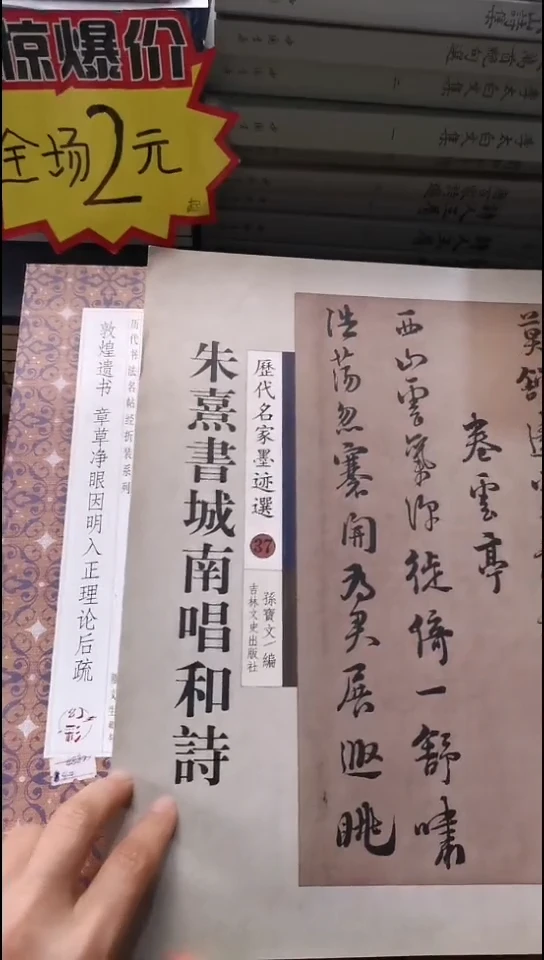 惊爆价
全场2元
李太白文集
二
李太白文集
一
历代书法名帖经折装系列
敦煌遗书 章草净眼因明入正理论后疏
歷代名家墨迹選
37
孫寶文 編
吉林文史出版社
朱熹書城南唱和詩
卷雲亭
西山雲氣深徙倚一舒嘯
浩蕩忽褰開為君展遐眺